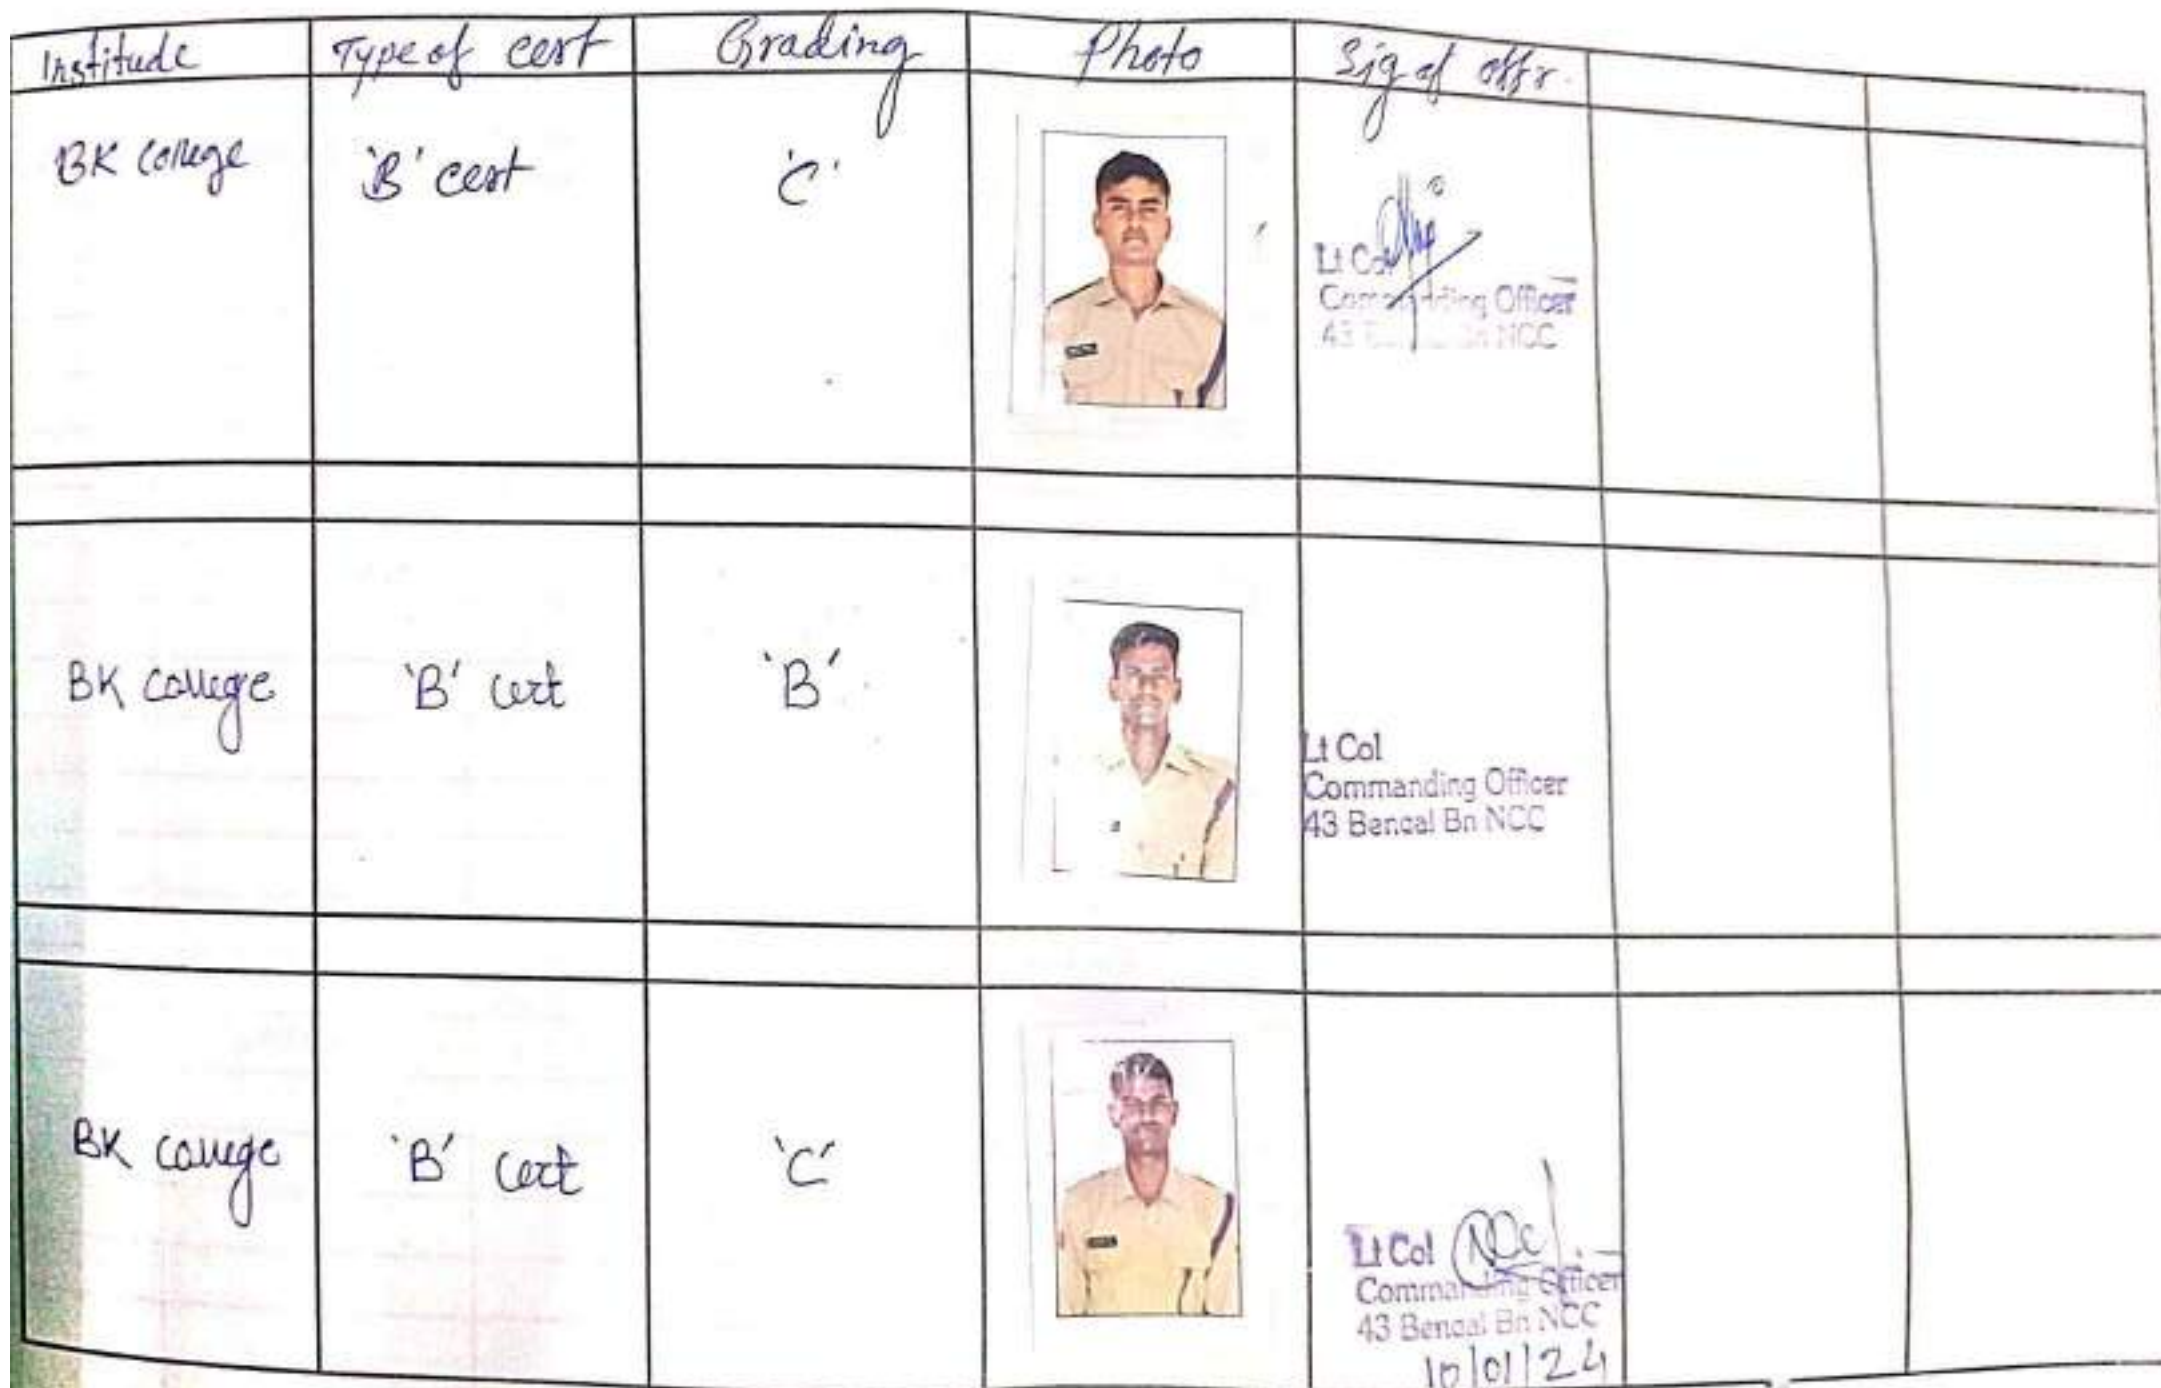 Institude Type of cert Grading Photo Sig of offr.
BK college 'B' cert 'C'
Lt Col
Commanding Officer
43 Bn NCC
BK college 'B' cert 'B'
Lt Col
Commanding Officer
43 Bengal Bn NCC
BK college 'B' cert 'C'
Lt Col
Commanding Officer
43 Bengal Bn NCC
10/01/24